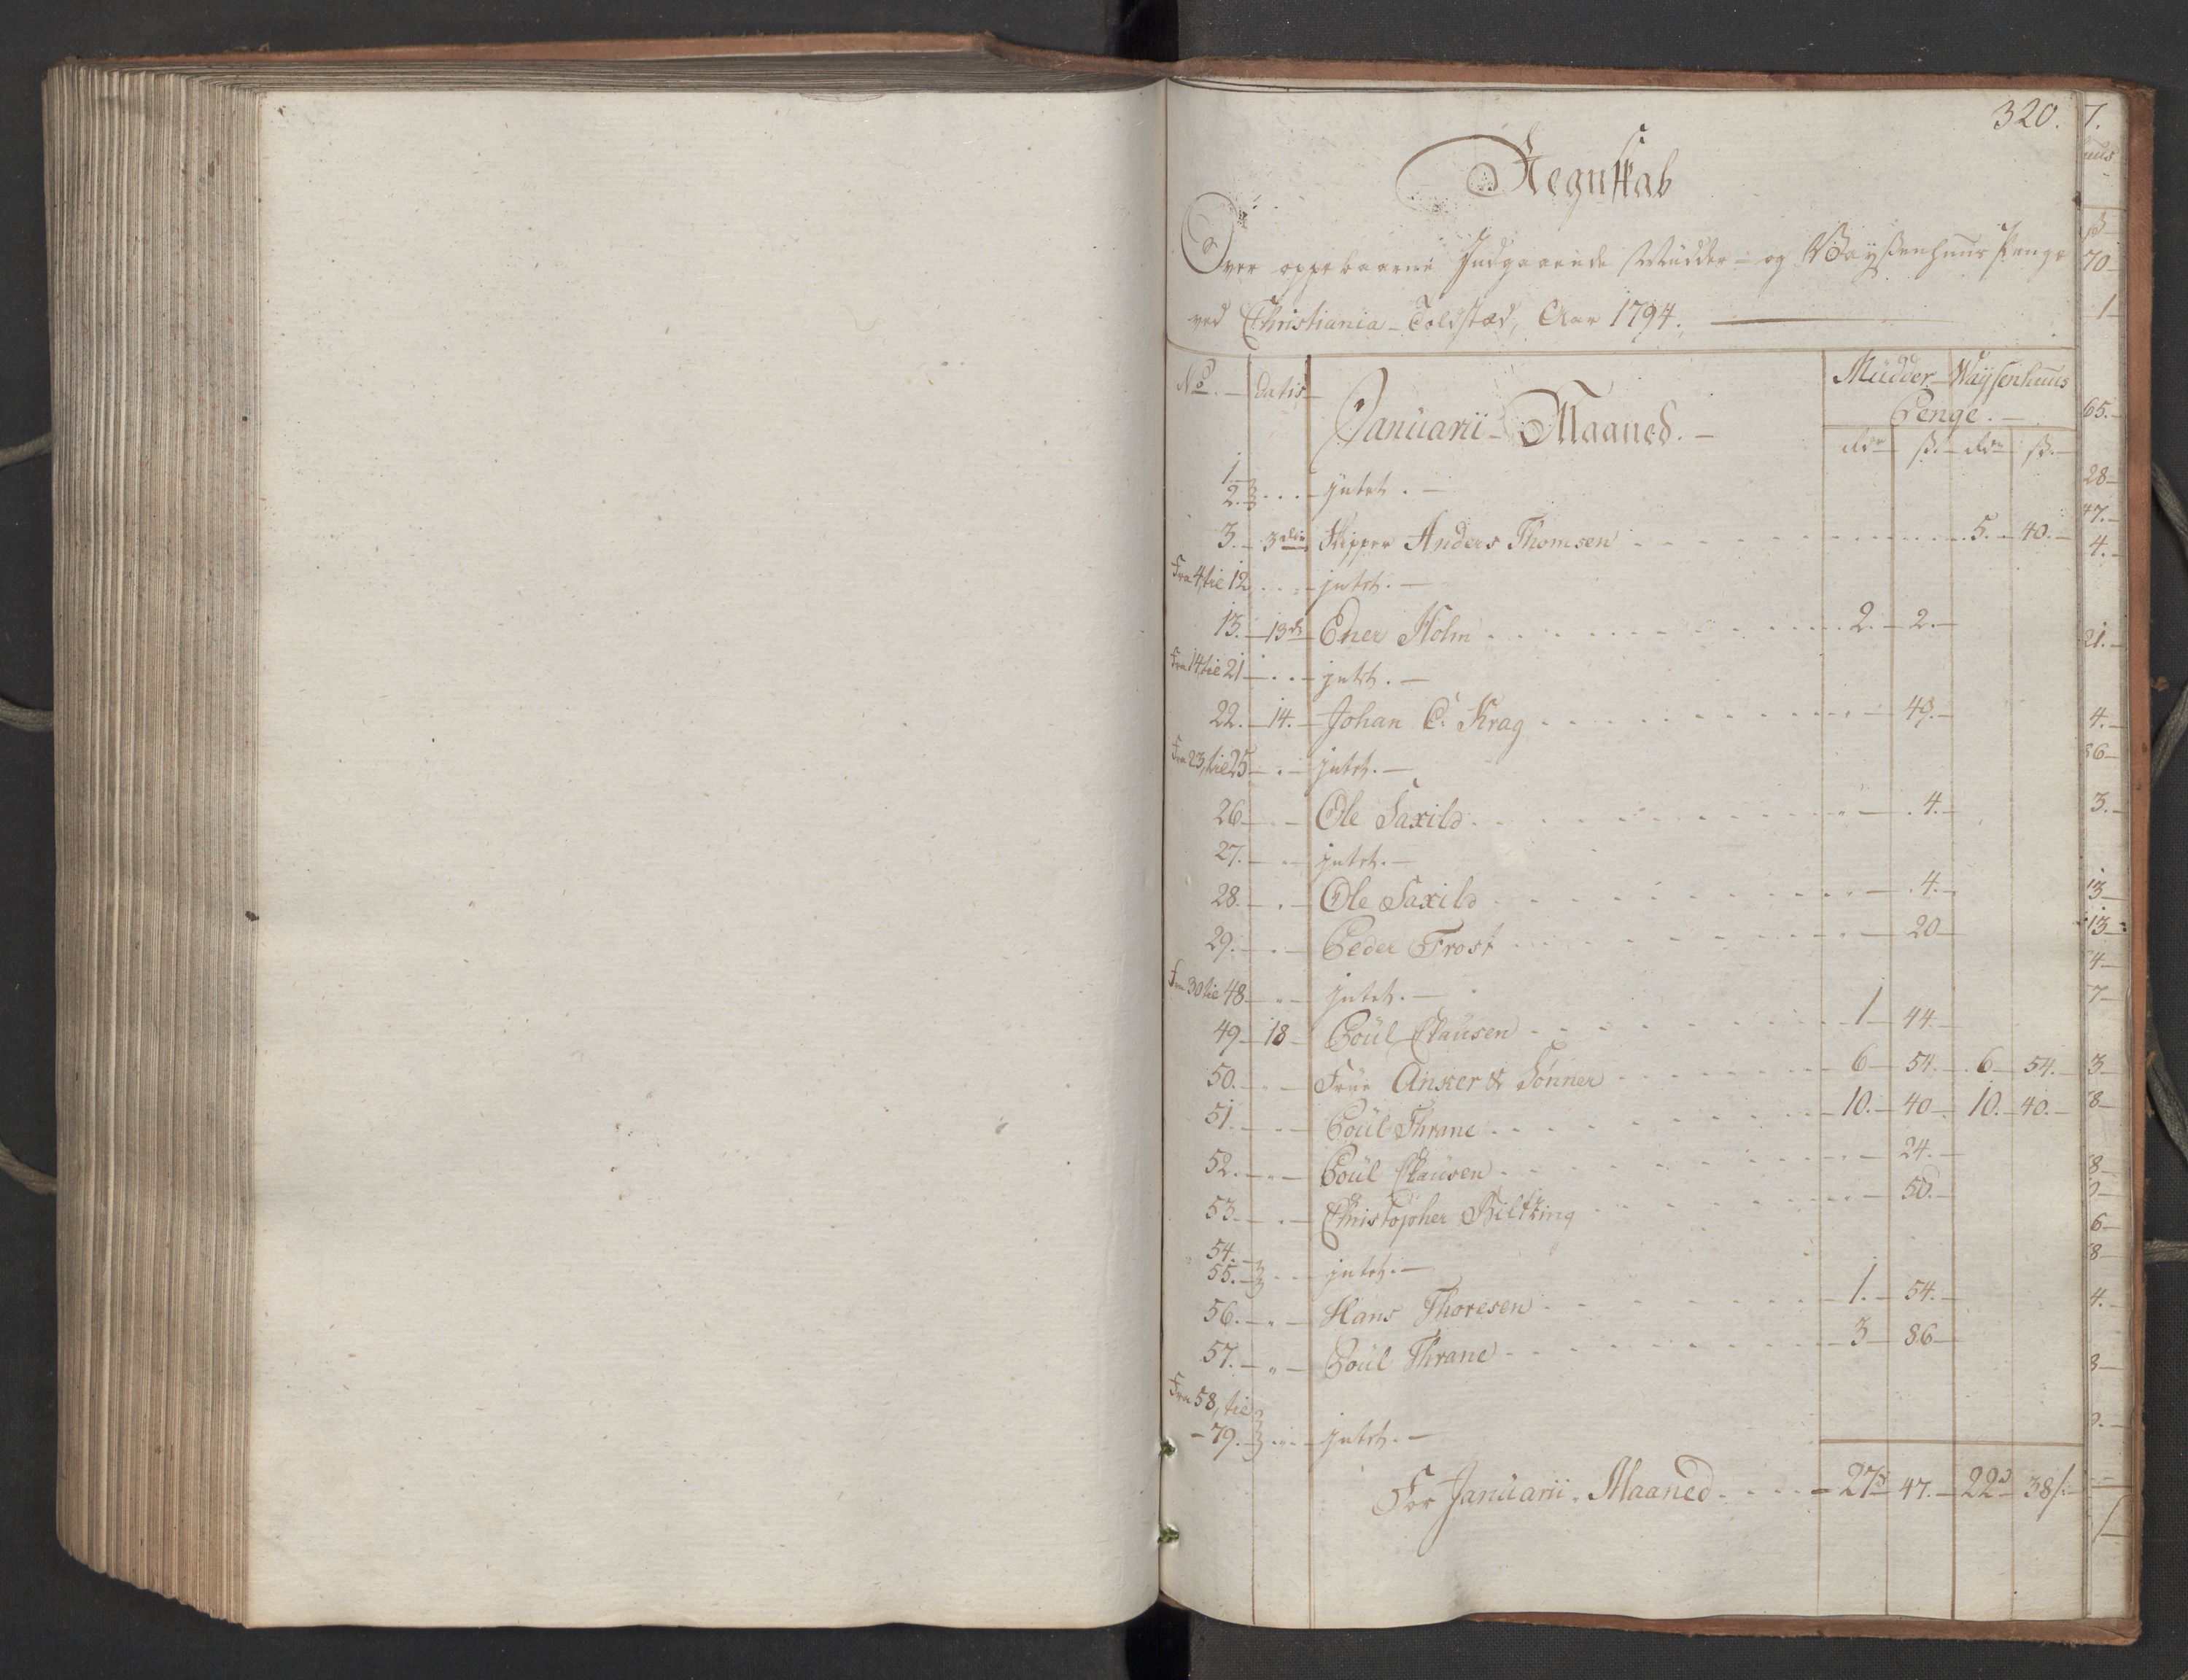 320.
Regnskab
Over oppebaarne Indgaaende Mudder- og Waysenhuus Penge
ved Christiania Toldsted, Aar 1794.
No. Datis Januarii Maaned. Mudder Waysenhuus
Penge.
rdr ß. rdr ß.
1.
2. intet.
3. 3die Skipper Anders Thomsen 5. 40.
Fra 4, til 12 intet.
13. 13de Ener Holm 2. 2.
Fra 14 til 21 intet.
22. 14. Johan C. Krag 49.
Fra 23, til 25 intet.
26 Ole Saxild 4.
27. intet.
28. Ole Saxild 4.
29. Peder Frost 20
Fra 30 til 48 intet.
49 18 Poül Clausen 1 44.
50. Frue Anker & Sønner 6 54. 6 54.
51. Poül Thrane 10. 40 10. 40.
52. Poül Clausen 24.
53. Christopher 50.
54.
55. intet.
56. Hans Thoresen 1. 54.
57. Poül Thrane 3 86
Fra 58, til
79. intet.
For Januarii Maaned 27 47. 22 38